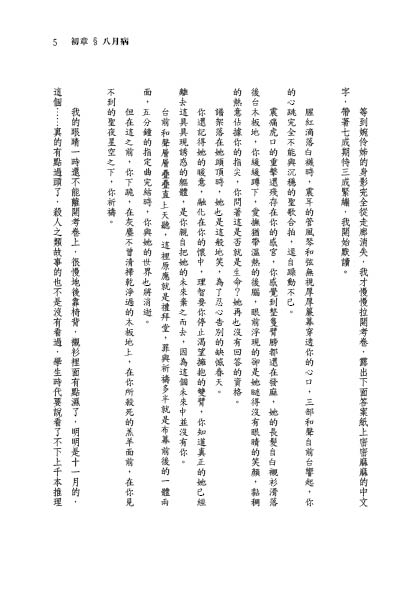 5　初章 § 八月病
等到婉伶姊的身影完全從走廊消失，我才慢慢拉開考卷，露出下面答案紙上密密麻麻的中文
字，帶著七成期待三成緊繃，我開始默讀。
腥紅滴落白襪時，震耳的管風琴和弦無視厚厚麗幕穿透你的心口，三部和聲自前台響起，你
的心跳完全不能與沉穩的聖歌合拍，逕自躁動不已。
震痛虎口的重擊還殘存在你的感官，你感覺到整隻臂膀都還在發麻，她的長髮自白襯衫滑落
後台木板地，你緩緩蹲下，愛撫猶帶溫熱的後腦，眼前浮現的卻是她瞇得沒有眼睛的笑顏，黏稠
的熱意佔據你的指尖，你問著這是否就是生命？她再也沒有回答的資格。
譜架落在她頭頂時，她也是這般地笑，為了忍心告別的缺憾春天。
你還記得她的暖意，融化在你的懷中，理智要你停止渴望擁抱的雙臂，你知道真正的她已經
離去這具具現誘惑的軀體，是你親自把她的未來棄之而去，因為這個未來中並沒有你。
台前和聲層層疊疊直上天聽，這裡原應就是禮拜堂，罪與祈禱多半就是布幕前後的一體兩
面，五分鐘的指定曲完結時，你與她的世界也將消逝。
但在這之前，你下跪，在灰塵不曾清掃乾淨過的木板地上，在你所殺死的羔羊面前，在你見
不到的聖夜星空之下，你祈禱。
我的眼睛一時還不能離開考卷上，很慢地後靠椅背，襯衫裡面有點濕了，明明是十一月的，
這個⋯⋯真的有點過頭了，殺人之類故事的也不是沒有看過，學生時代要說看了不下上千本推理